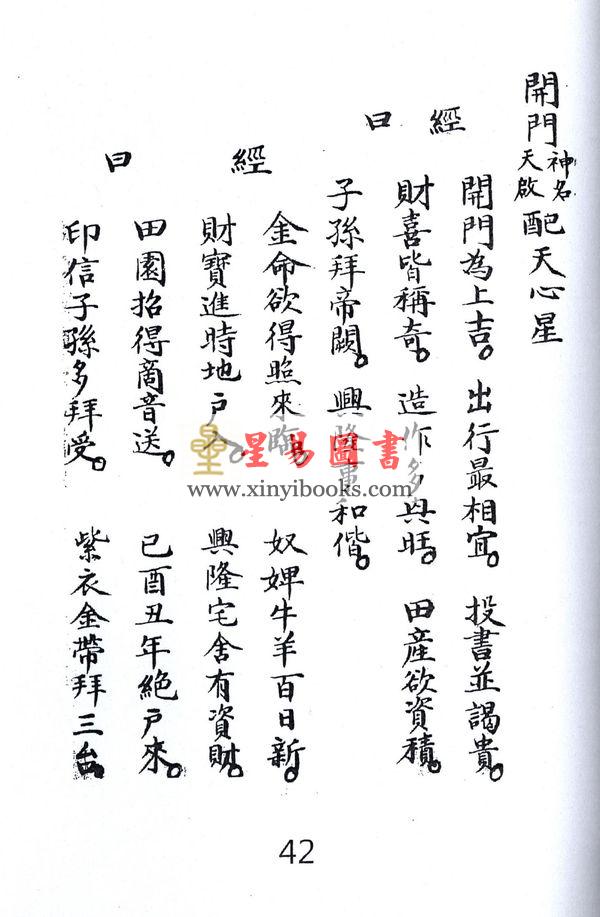 開門神名天啟配天心星
經曰
開門為上吉。出行最相宜。投書並謁貴。
財喜皆稱奇。造作多興旺。田產欲資積。
子孫拜帝闕。興隆事和偕。
經曰
金命欲得照來臨。奴婢牛羊百日新。
財寶進時地戶入。興隆宅舍有資財。
田園招得商音送。已酉丑年絕戶來。
印信子孫多拜受。紫衣金帶拜三台
星易圖書
www.xinyibooks.com
42